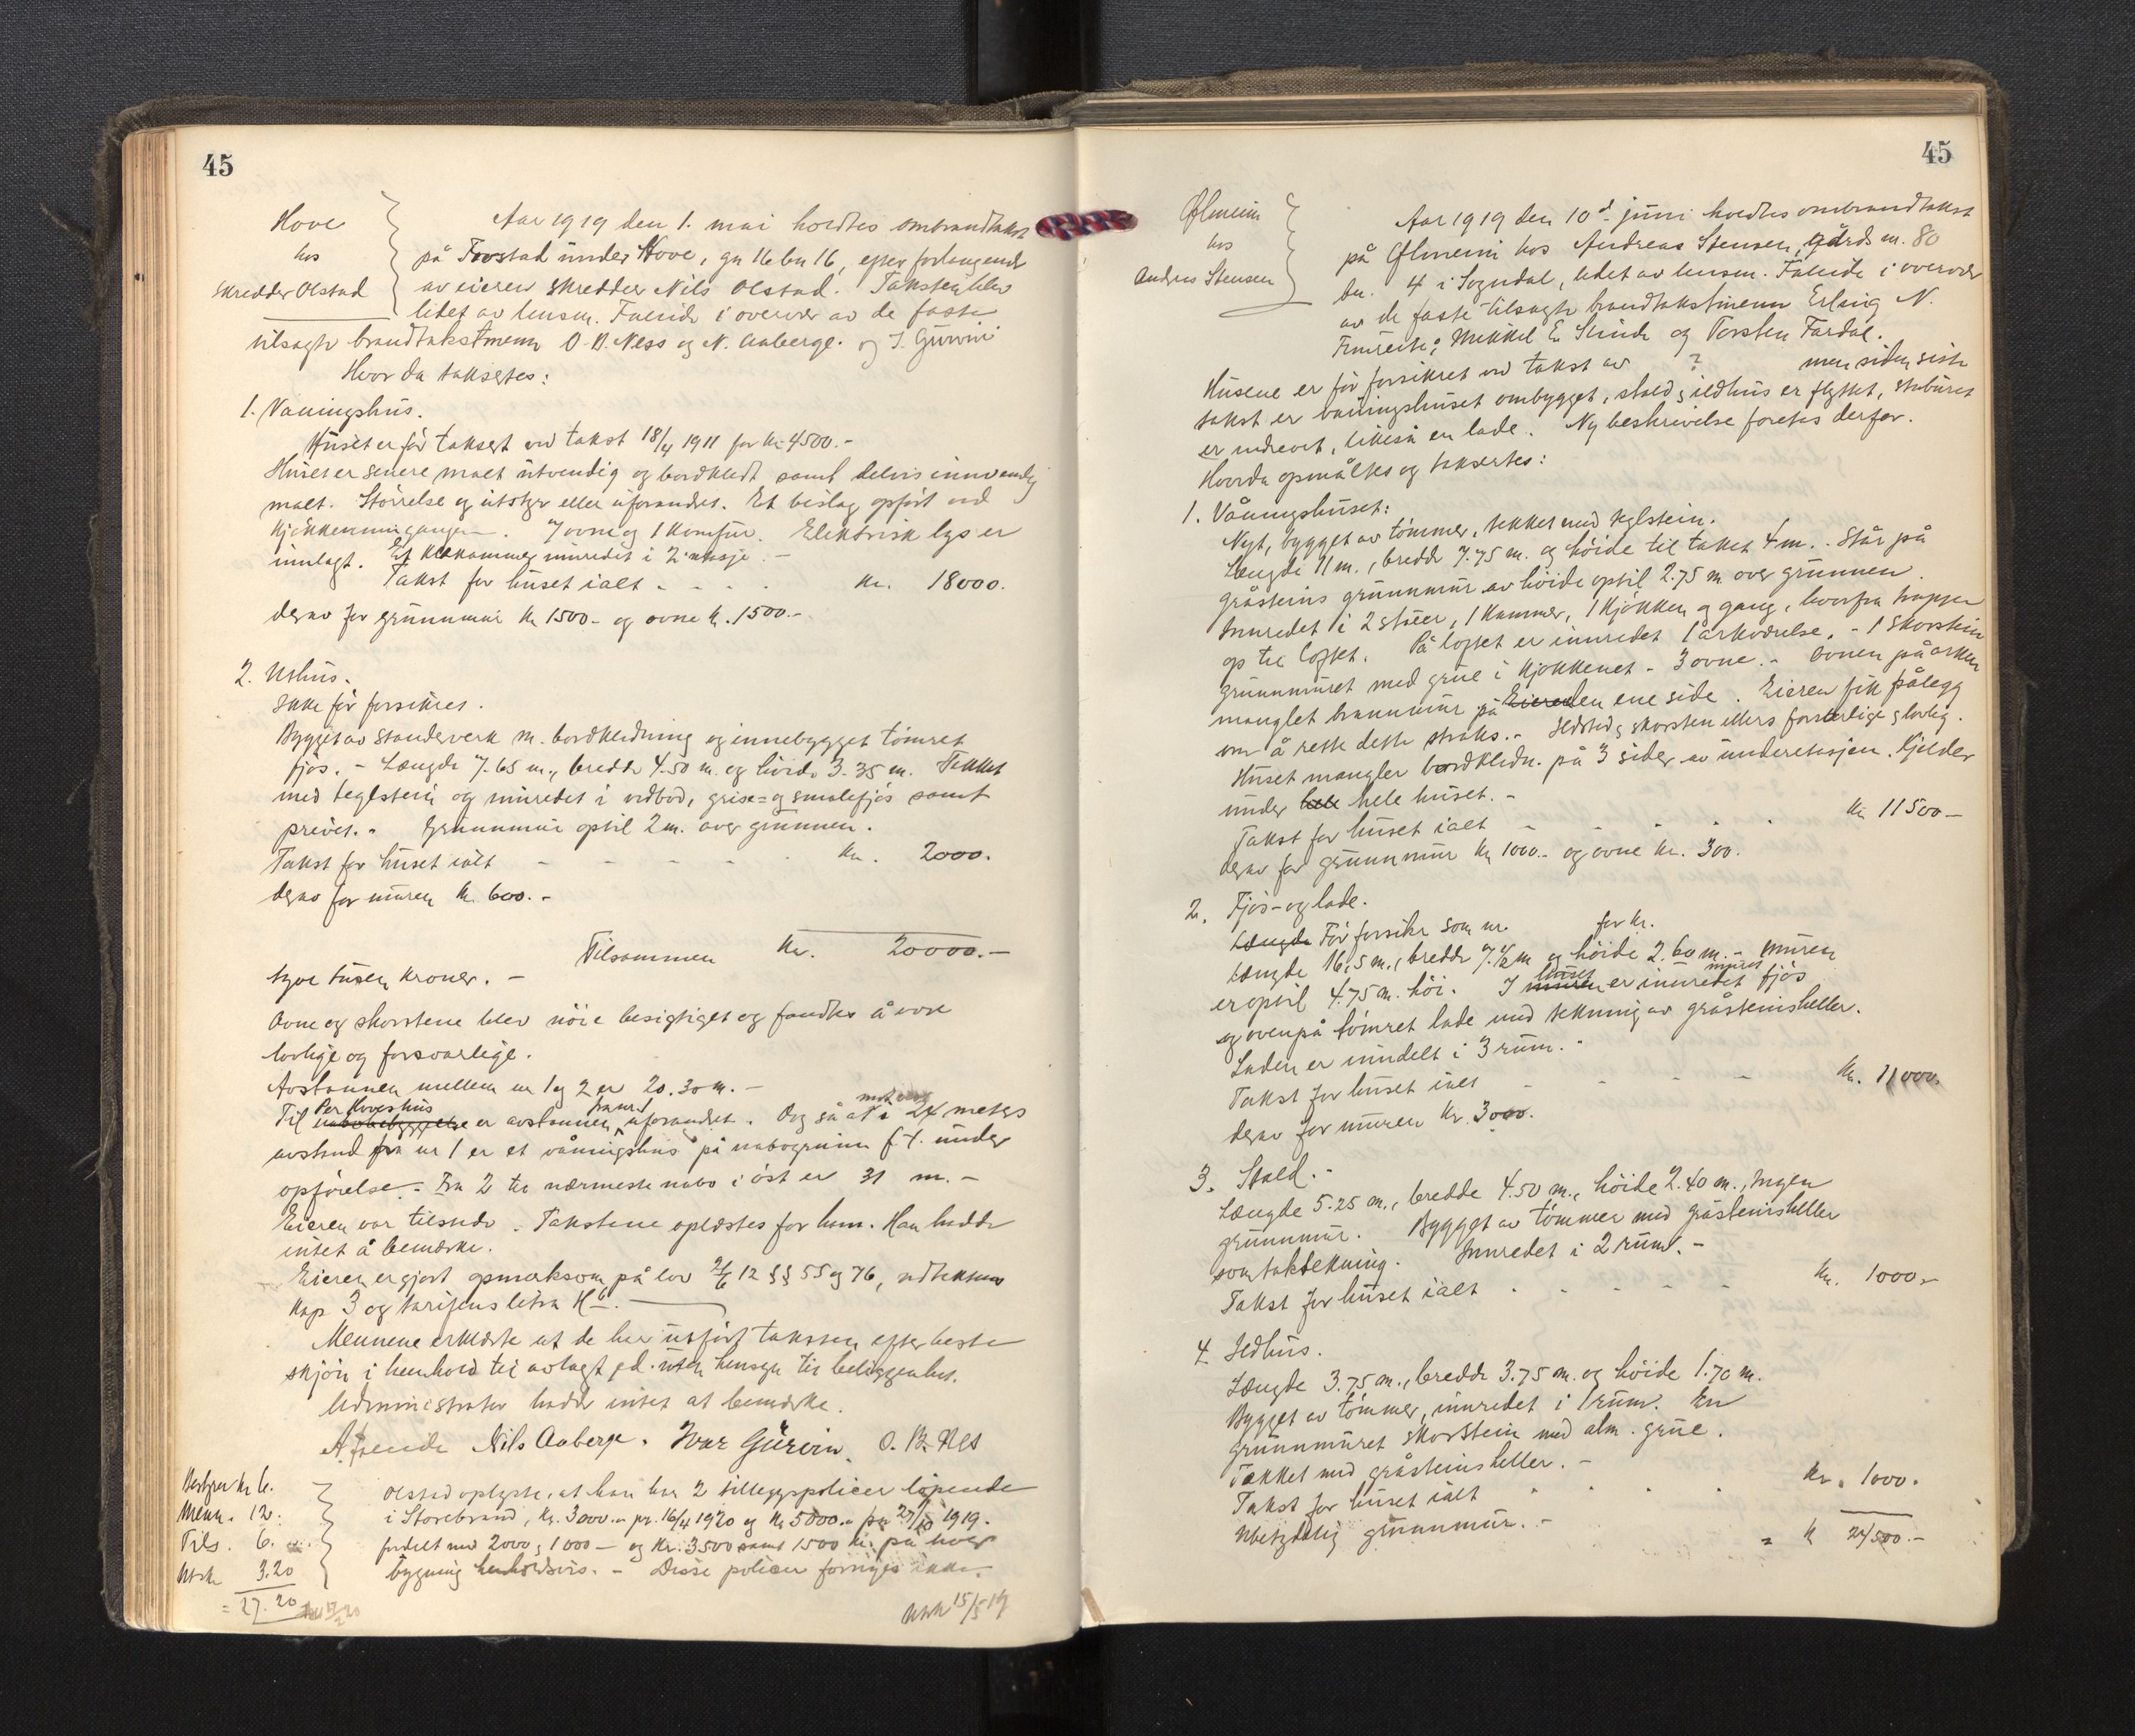 45
Hove
hos
Skredder Olstad
Aar 1919 den 1. mai holdtes ombrandtakst
på Frostad under Hove, gn 16 bn 16, efter forlangende
av eieren skredder Nils Olstad. Taksten blev
ledet av lensm. Faleide i overvær av de faste
tilsagte brandtakstmenn O. B. Ness og N. Aaberge. og I. Gurvin
Hvor da taksertes:
1. Vaaningshus.
Huset er før taksert ved takst 18/4 1911 for kr. 4500.-
Huset er senere malt utvendig og bordkledt samt delvis innvendig
malt. Størrelse og utstyr eller uforandret. Et beslag opført ved
kjøkkeninngangen. 7 ovne og 1 komfur. Elektrisk lys er
innlagt. Et kleskammer innredet i 2. etasje. -
Takst for huset ialt - - - . kr. 18000.
derav for grunnmur kr 1500- og ovne kr. 1500.-
2. Uthus.
Ikke før forsikret.
Bygget av standerverk m. bordkledning og innebygget tømret
fjøs. - Længde 7.65 m., bredde 4.50 m. og høide 3.35 m. Tekket
med teglstein og innredet i vedbod, grise= og smalefjøs samt
privet. - Grunnmur optil 2 m. over grunnen.
Takst for huset ialt - - - - - kr. 2000.
derav for muren kr. 600.-
Tilsammen kr. 20000.-
tyve tusen kroner. -
Ovne og skorstene blev nøie besigtiget og fandtes å være
lovlige og forsvarlige.
Avstannen mellem nr 1 og 2 er 20.30 m. -
Per Hoves hus
Til nabobebyggelse er avstannen uforandret. Dog så at i 24 meters
avstand fra nr 1 er et våningshus på nabogrunn f. t. under
opførelse. - Fra 2 til nærmeste nabo i øst er 31 m. -
Eieren var tilstede. Takstene oplæstes for ham. Han hadde
intet å bemærke.
Eieren er gjort opmerksom på lov 21/6 12 §§ 55 og 76, vedtektene
kap 3 og tarifens letra H6.
Mennene erklærte at de har utført taksten efter beste
skjøn i henhold til avlagt ed. uten hensyn til beliggenhet.
Administrator hadde intet at bemærke.
A. Faleide Nils Aaberge. Ivar Gürvin. O. B. Nes
Bestyrer kr 6.
Menn. 12.
Tils. 6.
Utsk 3.20
= 27.20
Olstad oplyste, at han har 2 tilleggspoliser løpende
i Storebrand, kr. 3000.- pr. 16/4 1920 og kr 5000.- pr 27/10 1919.
fordelt med 2000, 1000 - og kr. 3500 samt 1500 kr. på hver
bygning henholdsvis. - Disse policer fornyes ikke.
Utsk 15/5 19
45
Ølmeim
hos
Andreas Stensen
Aar 1919 den 10d. juni holdtes ombrandtakst
på Ølmeim hos Andreas Stensen, gårds nr. 80
bn. 4 i Sogndal, ledet av lensm. Faleide i overvær
av de faste tilsagte brandtakstmenn Erling N.
Fimreite, Mikkel E. Slinde og Torsten Fardal.
Husene er før forsikret ved takst av ? men siden siste
takst er vaaningshuset ombygget, stald, ildhus er flyttet, stabures
er nedrevet, likeså en lade. Ny beskrivelse foretas derfor.
Hvorda opmåltes og taksertes:
1. Våningshuset:
Nyt, bygget av tømmer, tekket med teglstein.
Længde 11 m., bredde 7.75 m. og høide til taket 4 m. Står på
gråsteins grunnmur av høide optil 2.75 m over grunnen.
Innredet i 2 stuer, 1 kammer, 1 kjøkken og gang, hvorfra trapper
op til loftet. På loftet er innredet 1 arkværelse. - 1 skorstein
grunnmuret med grue i kjøkkenet - 3 ovne. - Ovnen på arken
manglet brannmur på Eieren den ene side. Eieren fik pålegg
om å rette dette straks. - Ildsted, skorsten ellers forsvarlige, lovlig.
Huset mangler bordkledn. på 3 sider av underetasjen. Kjelder
under hele hele huset. -
Takst for huset ialt - - - - kr 11500-
derav for grunnmur kr 1000.- og ovne kr. 300.
2. Fjøs- og lade.
Længde Før forsikr som nr. for kr.
Længde 16,5 m., bredde 7.1/2 m og høide 2.60 m. - Muren
er optil 4.75 m. høi. I muren huset er innredet muret fjøs
og ovenpå tømret lade med tekning av gråsteinsheller.
Laden er inndelt i 3 rum. -
Takst for huset ialt - - - - kr. 11000.
derav for muren kr. 3000.
3. Stald. -
Længde 5.25 m., bredde 4.50 m., høide 2.40 m., Ingen
grunnmur. Bygget av tømmer med gråsteinsheller
som taktekning. Innredet i 2 rum. -
Takst for huset ialt - - - - kr. 1000.-
4 Ildhus.
Længde 3.75 m., bredde 3.75 m. og høide 1.70 m.
Bygget av tømmer, innredet i 1 rum. En
grunnmuret skorstein med alm. grue.
Tækket med gråsteinsheller. -
Takst for huset ialt - - - kr. 1000.
Ubetydelig grunnmur. -
= kr 24500.-